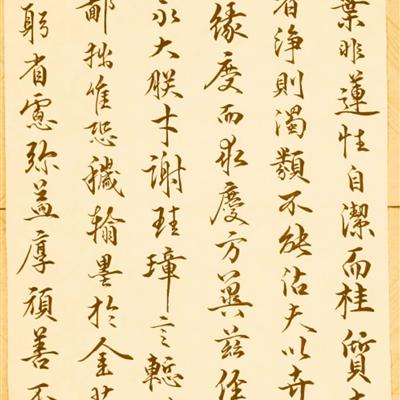 葉非蓮性自潔而桂質
者淨則濁類不能沾夫以卉
緣慶而求慶方冀茲經
永大朕才謝珪璋言慙
鄙拙惟恐穢翰墨於金
躬省慮弥益厚顏善不